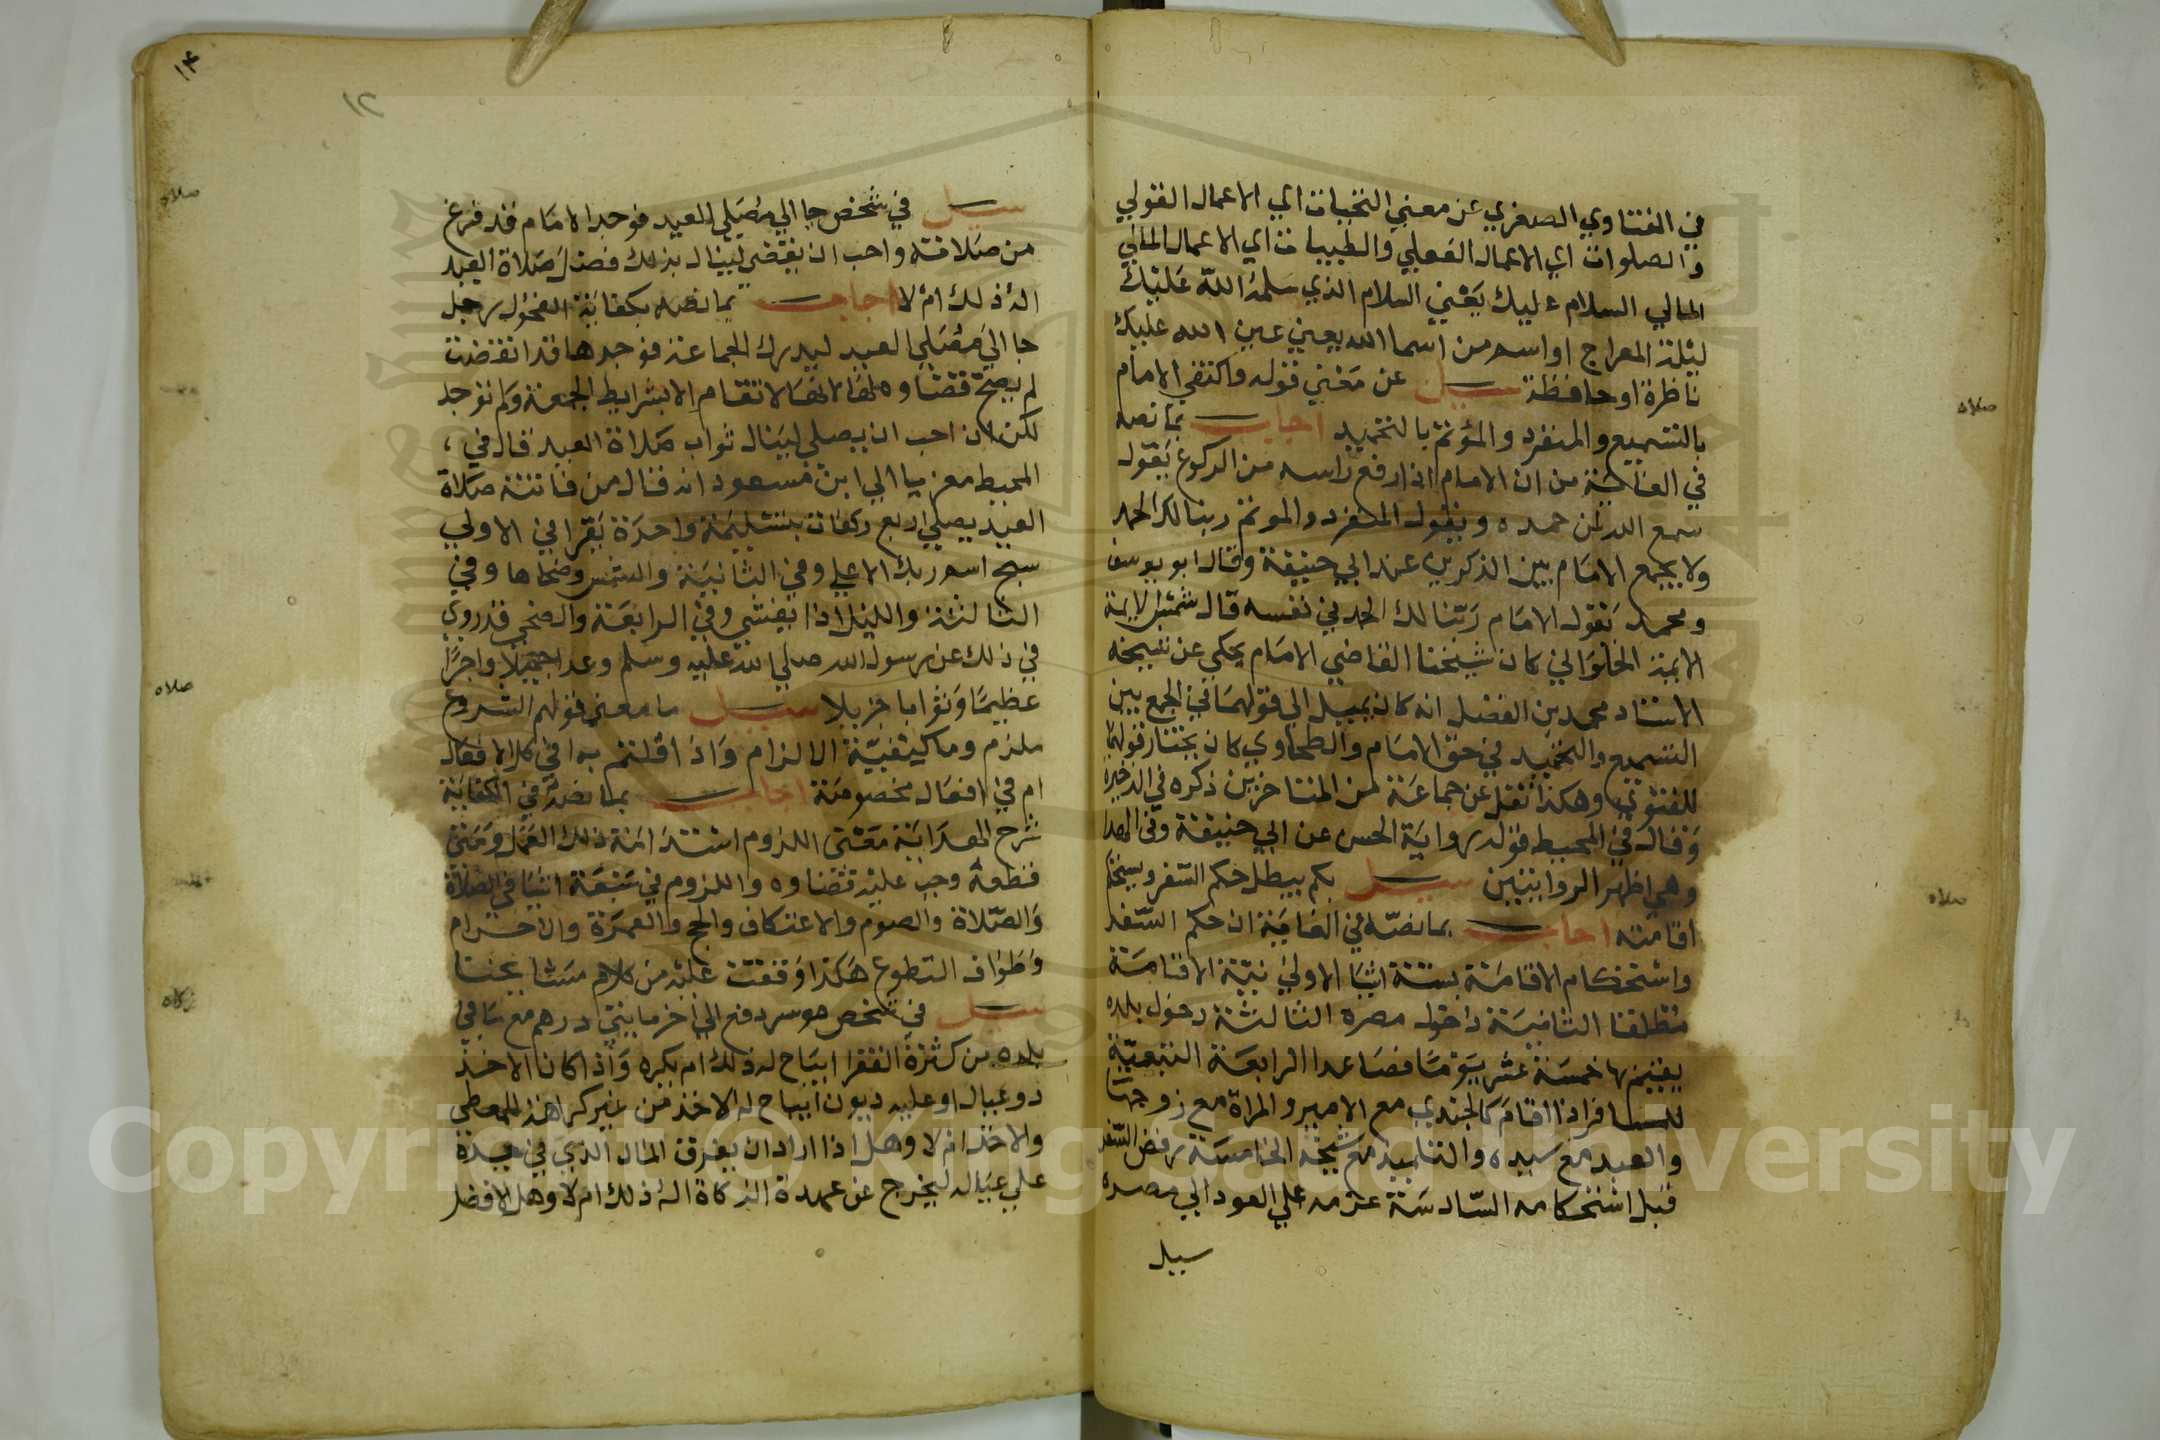 في الفتاوي الصغري عن معني التحيات اي الاعمال القولي
والصلوات اي الاعمال الفعلي والطيبات اي الاعمال المالي
المالي السلام عليك يعني السلام الذي سلمه الله عليك
ليلة المعراج او اسم من اسما الله يعني عين الله عليك
ناظرة او حافظة سيل عن معني قوله واكتفي الامام
بالتسميع والمنفرد والمؤتم بالتحميد اجاب بما نصه
في الغاية من ان الامام اذا رفع راسه من الركوع يقول
سمع الله لمن حمده ويقول المنفرد والموتم ربنا لك الحمد
ولا يجمع الامام بين الذكرين عند ابي حنيفة وقال ابو يوسف
ومحمد يقول الامام ربنا لك الحمد في نفسه قال شمس الايمة
الايمة الحلواني كان شيخنا القاضي الامام يحكي عن شيخه
الاستاد محمد بن الفضل انه كان يميل الي قولهما في الجمع بين
التسميع والتحميد في حق الامام والطحاوي كان يختار قولهما
للفتوي وهكذا نقل عن جماعة من المتاخرين ذكره في الذخيرة
وقال في المحيط قوله رواية الحسن عن ابي حنيفة وفي الهدا
وهي اظهر الروايتين سيل بكم يبطل حكم السفر ويستحكم
اقامته اجاب بما نصه في الغاية ان حكم السفر
واستحكام الاقامة بستة اشيا الاولي نية الاقامة
مطلقا الثانية دخول مصره الثالثة دخول بلده
يقيم بها خمسة عشر يوما فصاعدا الرابعة التبعية
للمسافر اذا اقام كالجندي مع الامير والمراة مع زوجها
والعبد مع سيده والتلميذ مع شيخه الخامسة رفض السفر
قبل استحكامه السادسة عزمه علي العود الي مصره
سيل
صلاه
صلاه
١٤
١٢
سيل في شخص جا الي مصلي العيد فوجد الامام قد فرغ
من صلاته واحب ان يقضي لينال بذلك فضل صلاة العيد
اله ذلك ام لا اجاب بما نصه بكفاية الفحول رجل
جا الي مصلي العيد ليدرك الجماعة فوجدها قد انقضت
لم يصح قضاوه لها لانها لا تقام الا بشرايط الجمعة ولم توجد
لكن ان احب ان يصلي لينال ثواب صلاة العيد قال في
المحيط معزيا الي ابن مسعود انه قال من فاتته صلاة
العيد يصلي اربع ركعات بتسليمة واحدة يقرا في الاولي
سبح اسم ربك الاعلي وفي الثانية والشمس وضحاها وفي
الثالثة والليل اذا يغشي وفي الرابعة والضحي قد روي
في ذلك عن رسول الله صلي الله عليه وسلم وعدا جميلا واجرا
عظيما وثوابا جزيلا سيل ما معني قولهم الشروع
ملزم وما كيفية الالزام واذا قلتم به افي كل الافعال
ام في افعال مخصوصة اجاب بما نصه في الكفاية
شرح الهداية معني اللزوم استدامة ذلك العمل ومتي
قطعه وجب عليه قضاوه واللزوم في سبعة اشيا في الصلاة
والصلاة والصوم والاعتكاف والحج والعمرة والاحرام
وطواف التطوع هكذا وقفت عليه من كلام مشايخنا
سيل في شخص موسر دفع الي اخر مايتي درهم مع ما في
بلده من كثرة الفقرا ايباح له ذلك ام يكره واذا كان الاخذ
ذو عيال او عليه ديون ايباح له الاخذ من غير كراهة للمعطي
والاخذ ام لا وهل اذا اراد ان يفرق المال الذي في يده
علي عياله ليخرج عن عهدة الزكاة اله ذلك ام لا وهل الافضل
صلاه
صلاه
زكاه
Copyright © King Saud University